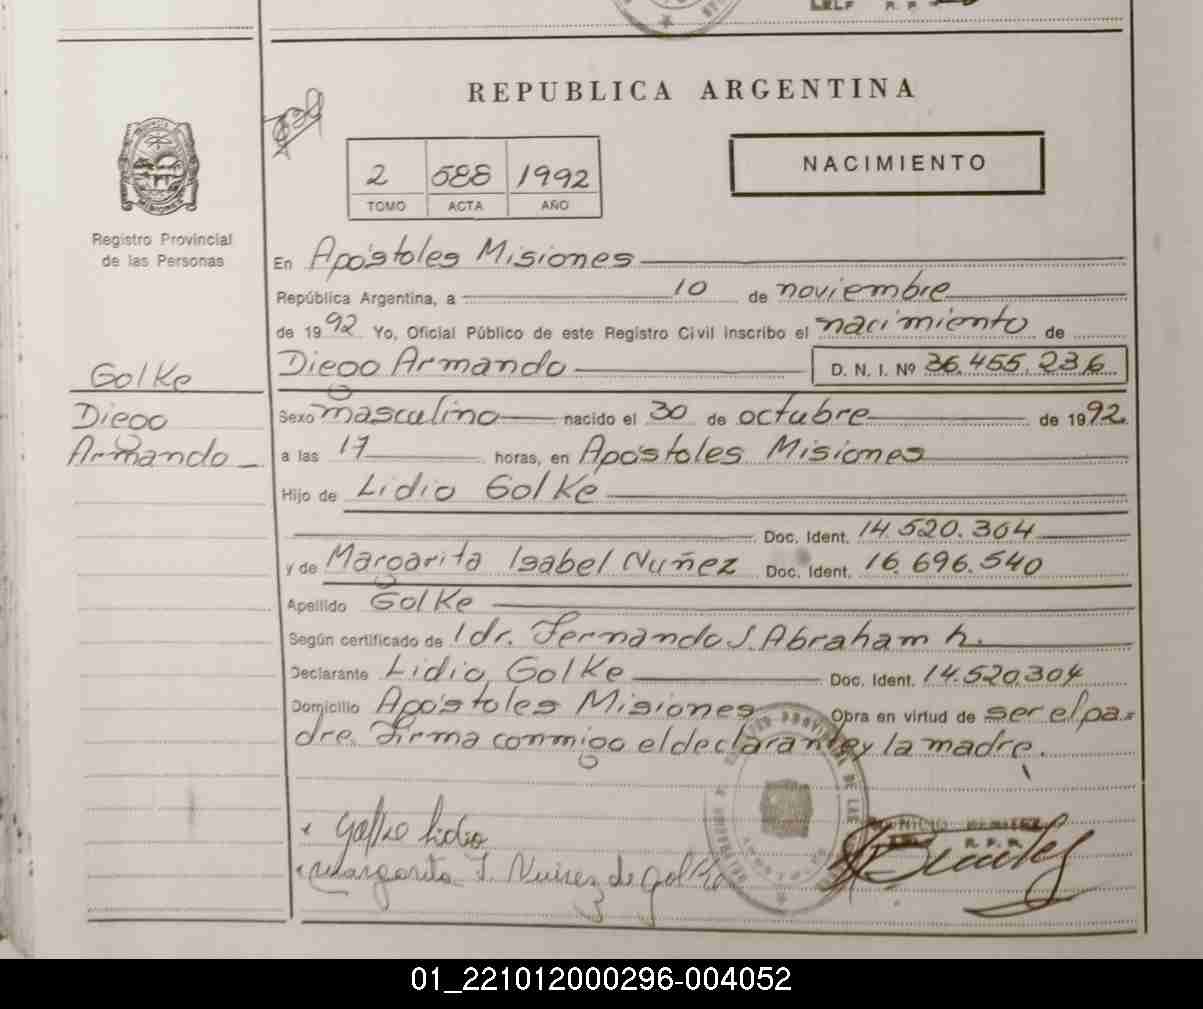 REPUBLICA ARGENTINA
NACIMIENTO
2 588 1992
TOMO ACTA AÑO
Registro Provincial
de las Personas
En Apóstoles Misiones
República Argentina, a 10 de noviembre
de 1992 Yo, Oficial Público de este Registro Civil inscribo el nacimiento de
Golke
Diego Armando D. N. I. Nº 36.455.236
Diego
Armando
Sexo masculino nacido el 30 de octubre de 1992
a las 17 horas, en Apóstoles Misiones
Hijo de Lidio Golke
Doc. Ident. 14.520.304
y de Margarita Isabel Nuñez Doc. Ident. 16.696.540
Apellido Golke
Según certificado de 1 dr. Fernando J. Abraham h.
Declarante Lidio Golke Doc. Ident. 14.520.304
Domicilio Apóstoles Misiones Obra en virtud de ser el pa=
dre. Firma conmigo el declarante y la madre.
Golke Lidio
Margarita I. Nuñez de Golke
R. P. P.
01_221012000296-004052